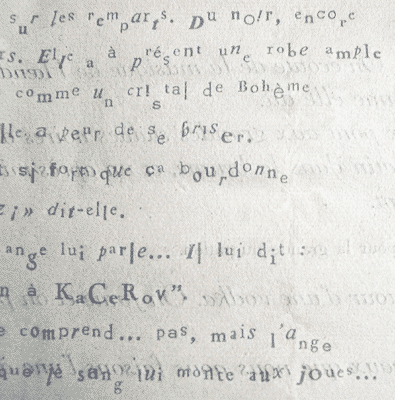 sur les remparts. Du noir, encore
rs. Elle a à présent une robe ample
comme un cristal de Bohème
lle a peur de se briser.
si fort que ça bourdonne
zi» dit-elle.
ange lui parle... Il lui dit :
n à KaCeRov".
e comprend... pas, mais l'ange
que le sang lui monte aux joues...